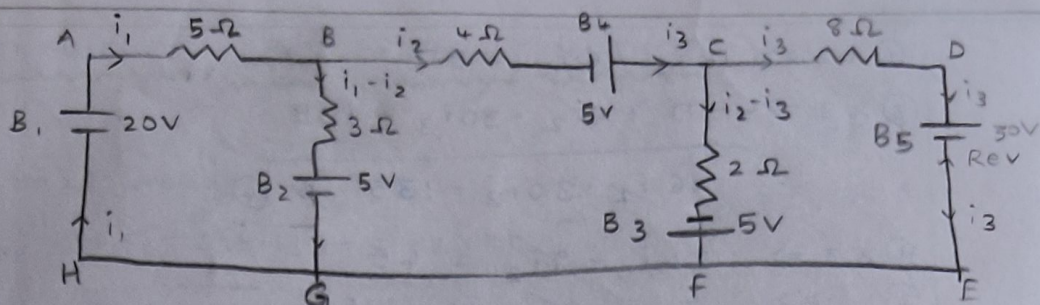 A i₁ 5Ω B i₂ 4Ω B4 i₃ C i₃ 8Ω D
i₁-i₂ 5V i₂-i₃ i₃
B₁ 20V 3Ω B5 30V
Rev
B₂ 5V 2Ω
i₁ B3 5V i₃
H G F E